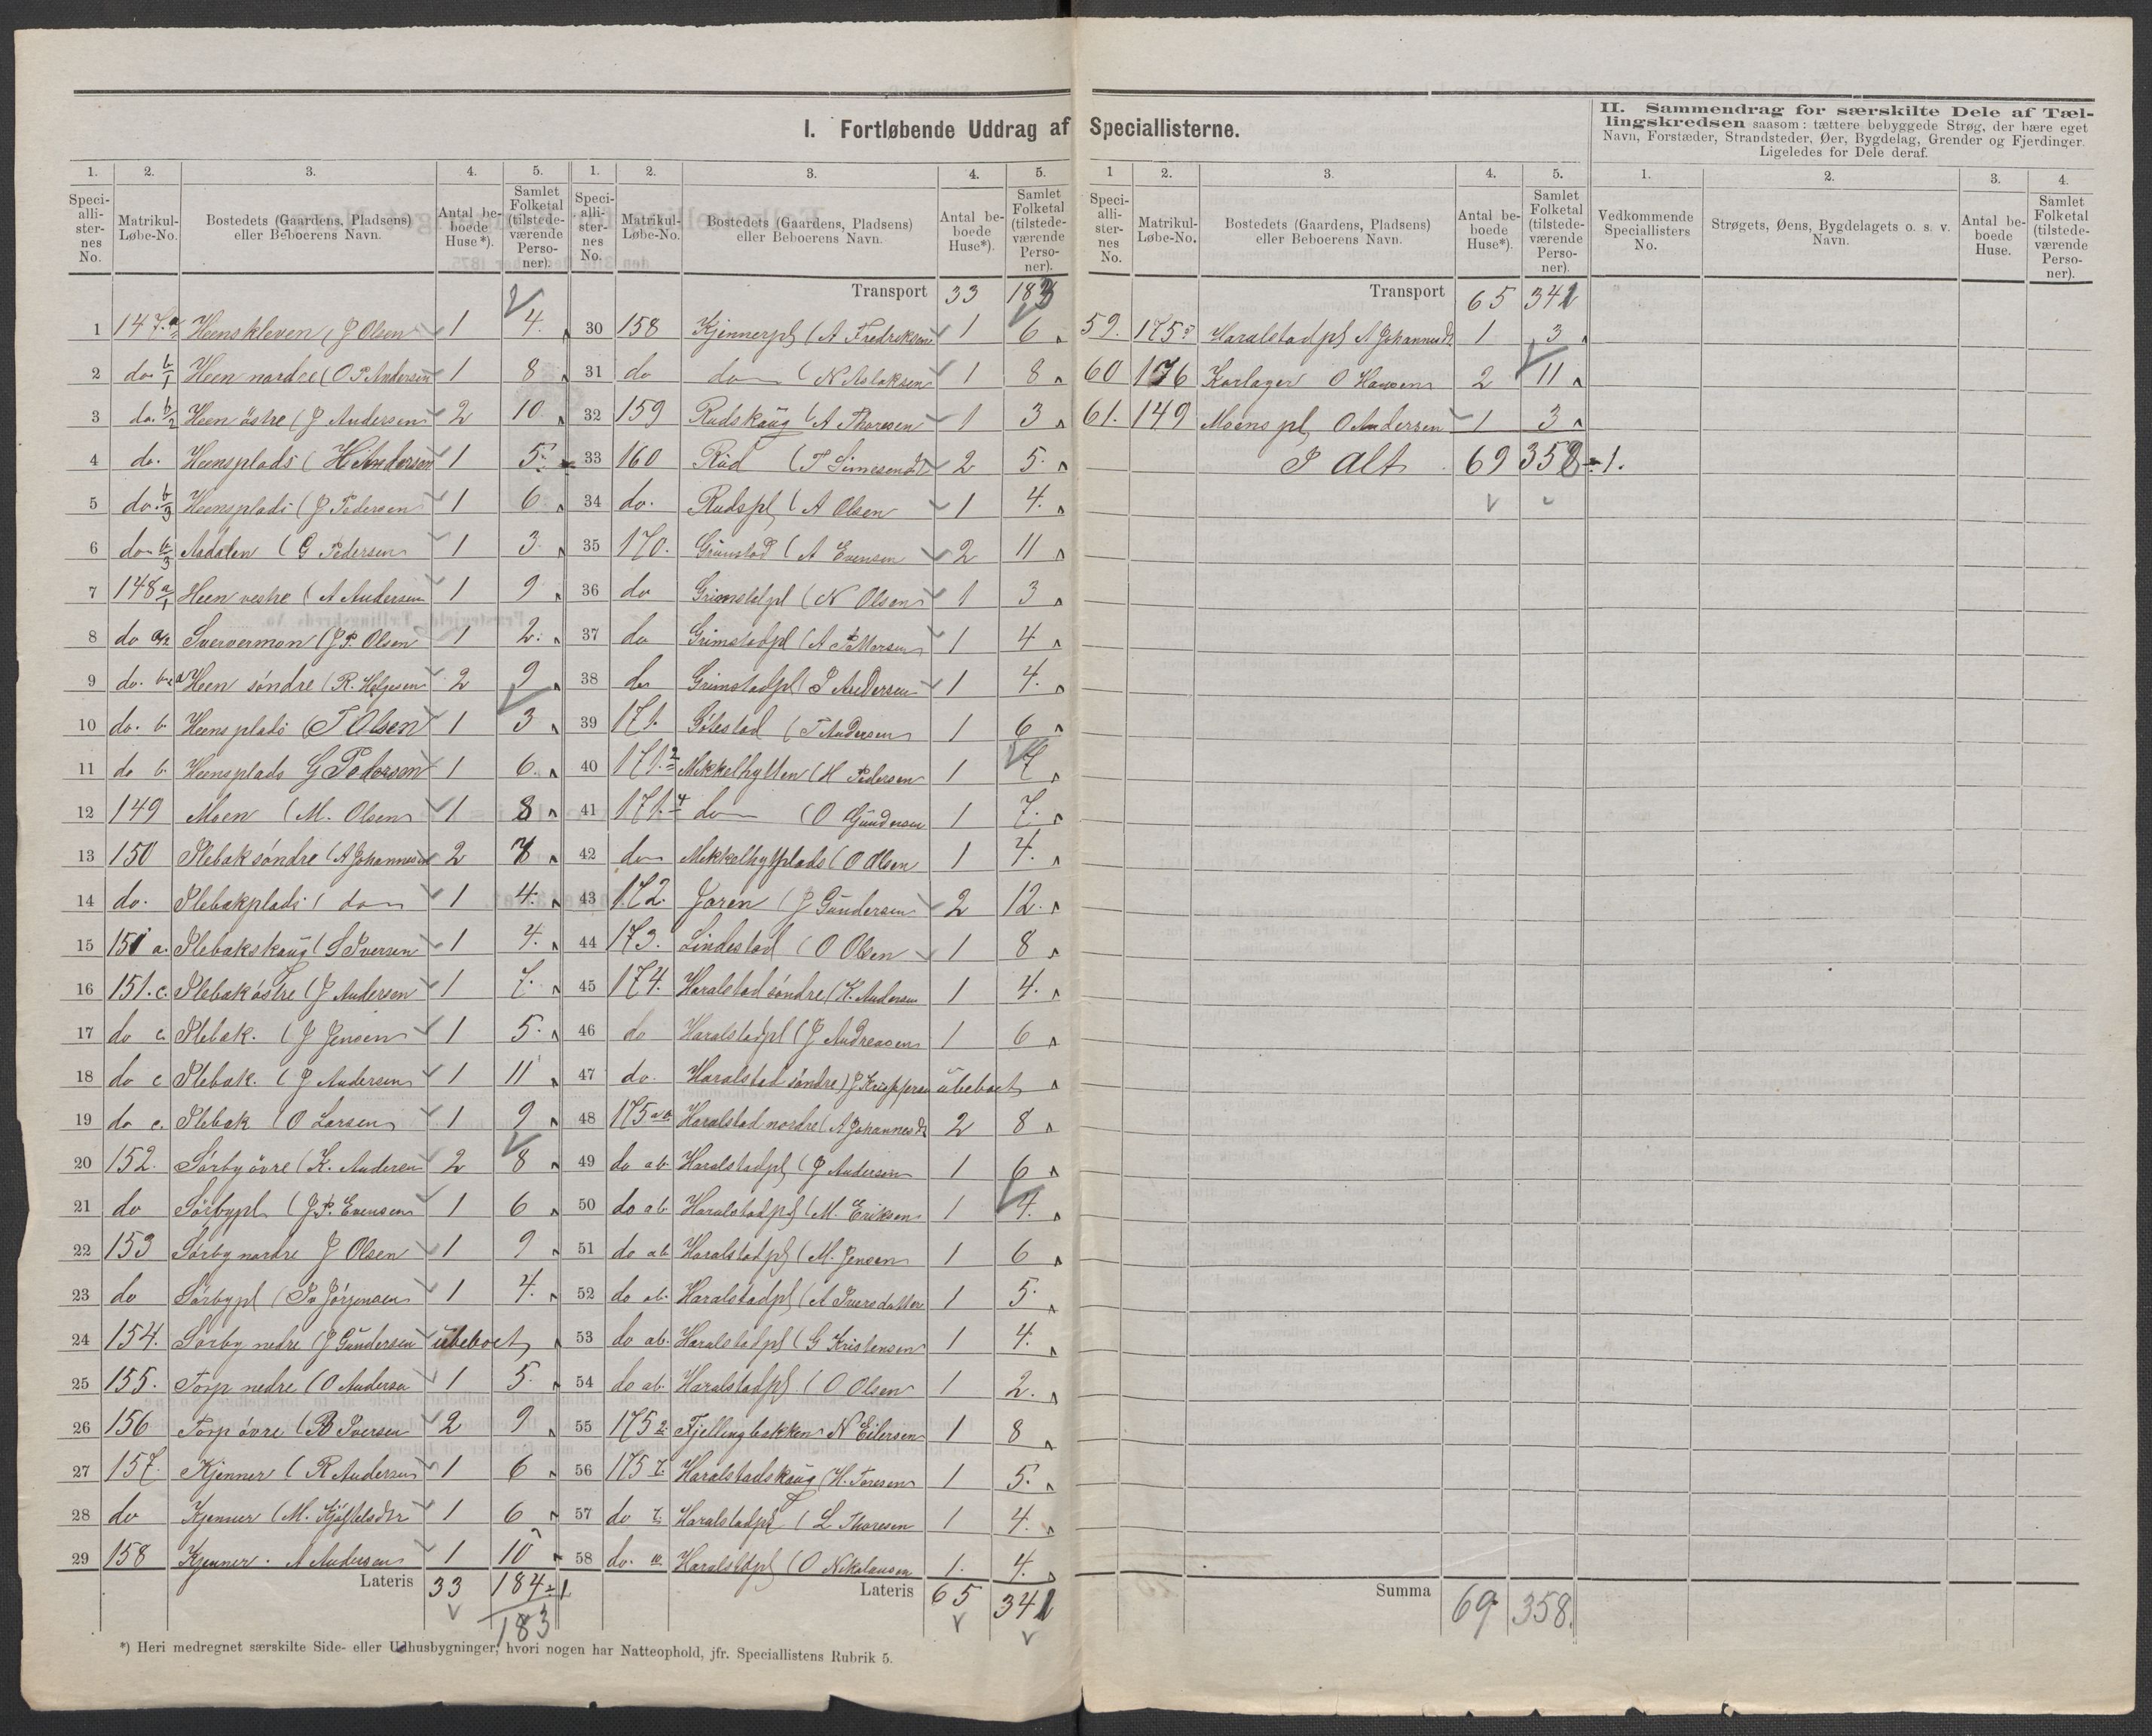 I. Fortløbende Uddrag af Speciallisterne.
1. 2. 3. 4. 5.
Speciallisternes No. Matrikul-Løbe-No. Bostedets (Gaardens, Pladsens) eller Beboerens Navn. Antal beboede Huse*). Samlet Folketal (tilstedeværende Personer).
1 147.a Heenskleven (J Olsen 1 4.
2 do b/1 Heen nordre (O P Andersen 1 8
3 do. b/2 Heen östre (J Andersen 2 10
4 do. Heensplads (H Andersen 1 5.
5 do. b/3 Heensplads (J Pedersen 1 6
6 do b/3 Aadalen (G Pedersen 1 3
7 148 a/1 Heen vestre (A Andersen 1 9
8 do a/2 Sververmon (J P. Olsen 1 2.
9 do. Heen söndre (R. Helgesen 2 9
10 do. b. Heensplads (T Olsen 1 3
11 do b. Heensplads G Pedersen 1 6.
12 149 Moen (M. Olsen 1 8
13 150 Plebak söndre (A Johannesen 2 7
14 do. Plebakplads (do 1 4.
15 151 a. Plebakskaug (S Iversen 1 4.
16 151. c. Plebak östre (J Andersen 1 7.
17 do c. Plebak. (J Jensen 1 5.
18 do c Plebak. (J Andersen 1 11
19 do c. Plebak (O Larsen 1 9
20 152. Sörby övre (K. Andersen 2 8
21 do Sörbypl (J P. Evensen 1 6
22 153 Sörby nordre J Olsen 1 9
23 do Sörbypl (Jörgensen 1 4.
24 154. Sörby nedre (J Gundersen ubeboet
25 155. Torp nedre (O Andersen 1 5.
26 156 Torp övre (B Iversen 2 9
27 157. Kjenner (R Andersen 1 6
28 do Kjenner (M. 1 6
29 158 Kjenner. A Andersen 1 10
Lateris 33 184 ÷ 1
183
*) Heri medregnet særskilte Side- eller Udhusbygninger, hvori nogen har Natteophold, jfr. Speciallistens Rubrik 5.
1. 2. 3. 4. 5.
Speciallisternes No. Matrikul-Løbe-No. Bostedets (Gaardens, Pladsens) eller Beboerens Navn. Antal beboede Huse*). Samlet Folketal (tilstedeværende Personer).
Transport 33 183
30 158 Kjennerpl (A Fredriksen 1 6
31 do do (N Aslaksen 1 8
32 159 Rudskaug (A Thoresen 1 3
33 160 Rud 2 5.
34 do. Rudspl (A Olsen 1 4.
35 170. Grimstad (A Evensen 2 11
36 do Grimstadpl (N Olsen 1 3
37 do Grimstadpl (A Pettersen 1 4
38 do Grimstadpl (P Andersen 1 4.
39 171. Götestad (T Andersen 1 6
40 171.2 Mikkelhytten (H Pedersen 1 7
41 171.4 do (O Gundersen 1 7.
42 do Mikkelhytplads (O Olsen 1 4.
43 172. Joren (J Gundersen 2 12.
44 173. Lindestad (O Olsen 1 8
45 174. Haralstad söndre (K. Andersen 1 4.
46 do Haralstadpl (J Andreasen 1 6
47 do. Haralstad söndre) J ubeboet
48 175 ab Haralstad nordre (A Johannesdt 2 8
49 do ab. Haralstadpl (J Andersen 1 6
50 do ab. Haralstadpl (M. Eriksen 1 4.
51 do ab Haralstadpl (M. Jensen 1 6
52 do ab. Haralstadpl (A Iversdatter 1 5.
53 do ab. Haralstadpl (G Kristensen 1 4.
54 do ab. Haralstadpl (O Olsen 1 2.
55 175 2. Fjellingbakken N Eilersen 1 8
56 175 7. Haralstadskaug (H. Toresen 1 5.
57 do 7. Haralstadpl (L Thoresen 1 4.
58 do. Haralstdpl (O Nikolausen 1. 4.
Lateris 65 341
1 2. 3. 4. 5.
Speciallisternes No. Matrikul-Løbe-No. Bostedets (Gaardens, Pladsens) eller Beboerens Navn. Antal beboede Huse*). Samlet Folketal (tilstedeværende Personer).
Transport 65 341
59. 175 3 Haralstadpl A Johannesdt 1 3
60 176 Karlager O Hansen 2 11
61. 149 Moens pl, O Andersen 1 3
I alt 69 358 ÷ 1.
Summa 69 358.
II. Sammendrag for særskilte Dele af Tællingskredsen saasom: tættere bebyggede Strøg, der bære eget Navn, Forstæder, Strandsteder, Øer, Bygdelag, Grender og Fjerdinger. Ligeledes for Dele deraf.
1. 2. 3. 4.
Vedkommende Speciallisters No. Strøgets, Øens, Bygdelagets o. s. v. Navn. Antal beboede Huse. Samlet Folketal (tilstedeværende Personer).